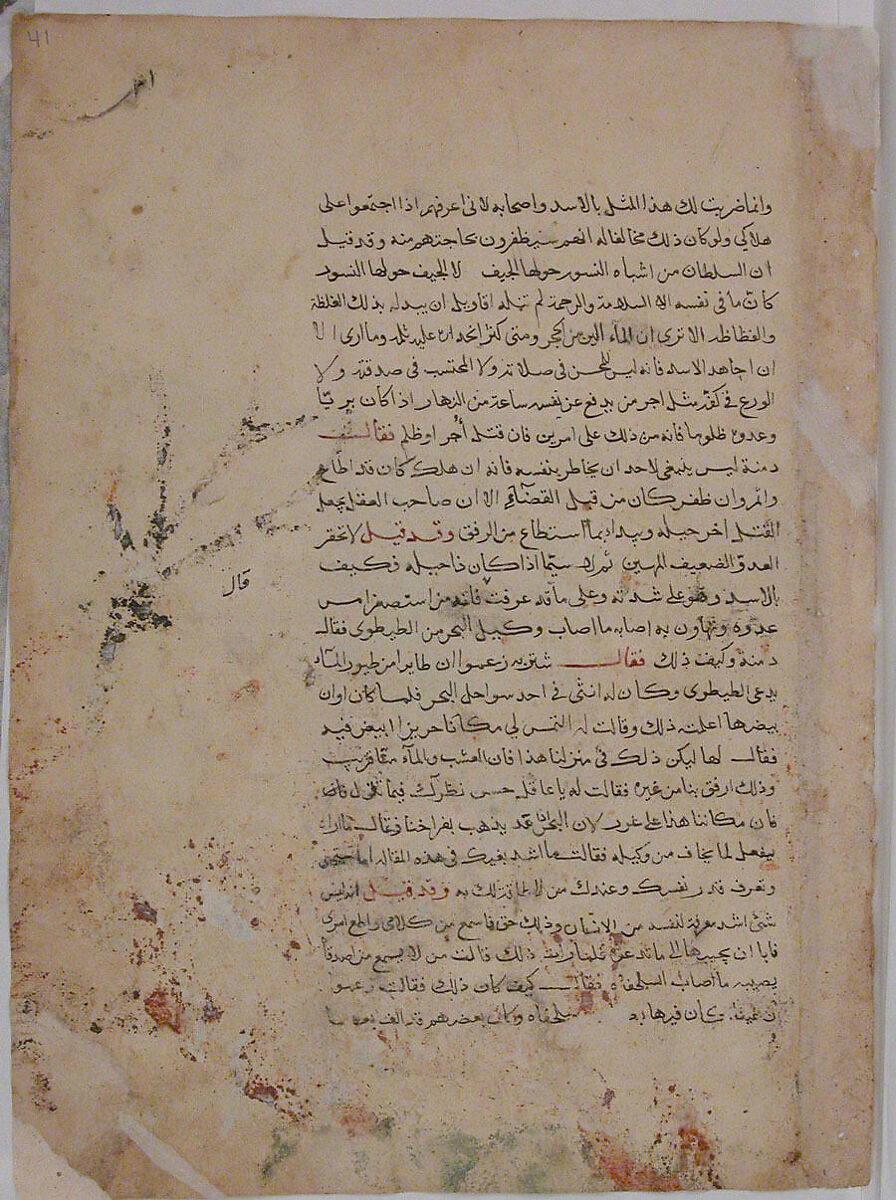 41
وانما ضربت لك هذا المثل بالاسد واصحابه لاني اعرفهم اذا اجتمعوا على
هلاكي ولو كان ذلك مخالفا له انهم سيظفرون بحاجتهم منه وقد قيل
ان السلطان من اشباه النسور حولها الجيف لا الجيف حولها النسور
كان ما في نفسه الا السلامة والرحمة لم تنله اقاويل ان يبدله بذلك الغلظة
والفظاظه الا ترى ان المآء الين من الحجر ومتى كثر انحداره عليه ثلمه وما ارى الا
ان اجاهد الاسد فانه ليس للمحسن في صلاته ولا المحتسب في صدقته ولا
الورع في مثل اجر من يدفع عن نفسه ساعة من النهار اذا كان بريّا
وعدوه ظلوما فانه من ذلك على امرين فان قتله أجر او ظلم فقالــت
دمنة ليس ينبغي لاحد ان يخاطر بنفسه فانه ان هلك كان قد اطاع
وان ظفر كان من قبل القضآء الا ان صاحب العقل يجعل
القتل اخر حيله ويبدا بما استطاع من الرفق وقد قيل لا تحقر
العدو الضعيف المهين ثم لا سيّما اذا كان ذا حيله فكيف
بالاسد وهو على شدته وعلى ما قد عرفت فانه من استصغر امر
عدوه وتهاون به اصابه ما اصاب وكيل البحر من الطيطوى فقالــ
دمنة وكيف ذلك فقالــ شتربه زعموا ان طايرا من طيور المآء
يدعى الطيطوى وكان له انثى في احد سواحل البحر فلما كان اوان
بيضها اعلمته ذلك وقالت له التمس لي مكانا حريزا ابيض فيه
فقالــ لها ليكن ذلك في منزلنا هذا فان العشب والمآء منّا قريب
وذلك ارفق بنا من غيره فقالت له يا عاقل حسن نظرك فيما تقول
فان مكاننا هذا على غرر لان البحر اذا مد يذهب بفراخنا فقالــ ما اراه
يفعل لما يخاف من وكيله فقالت ما اشد بغيك في هذه المقاله اما تستحي
وتعرف قدر نفسك وعندك من لا طاقة لك به وقد قيل انه ليس
شيء اشد معرفة لنفسه من الانسان وذلك حق فاسمع من كلامي واطع امري
فابا ان يجيبها الى ما تدعوه فلما رات ذلك قالت من لا يسمع من اصدقا
يصيبه ما اصاب السلحفاه فقالــ كيف كان ذلك فقالت زعموا
ان عينا كان فيها سلحفاه وكان بعضهم قد الف بعضا
قال